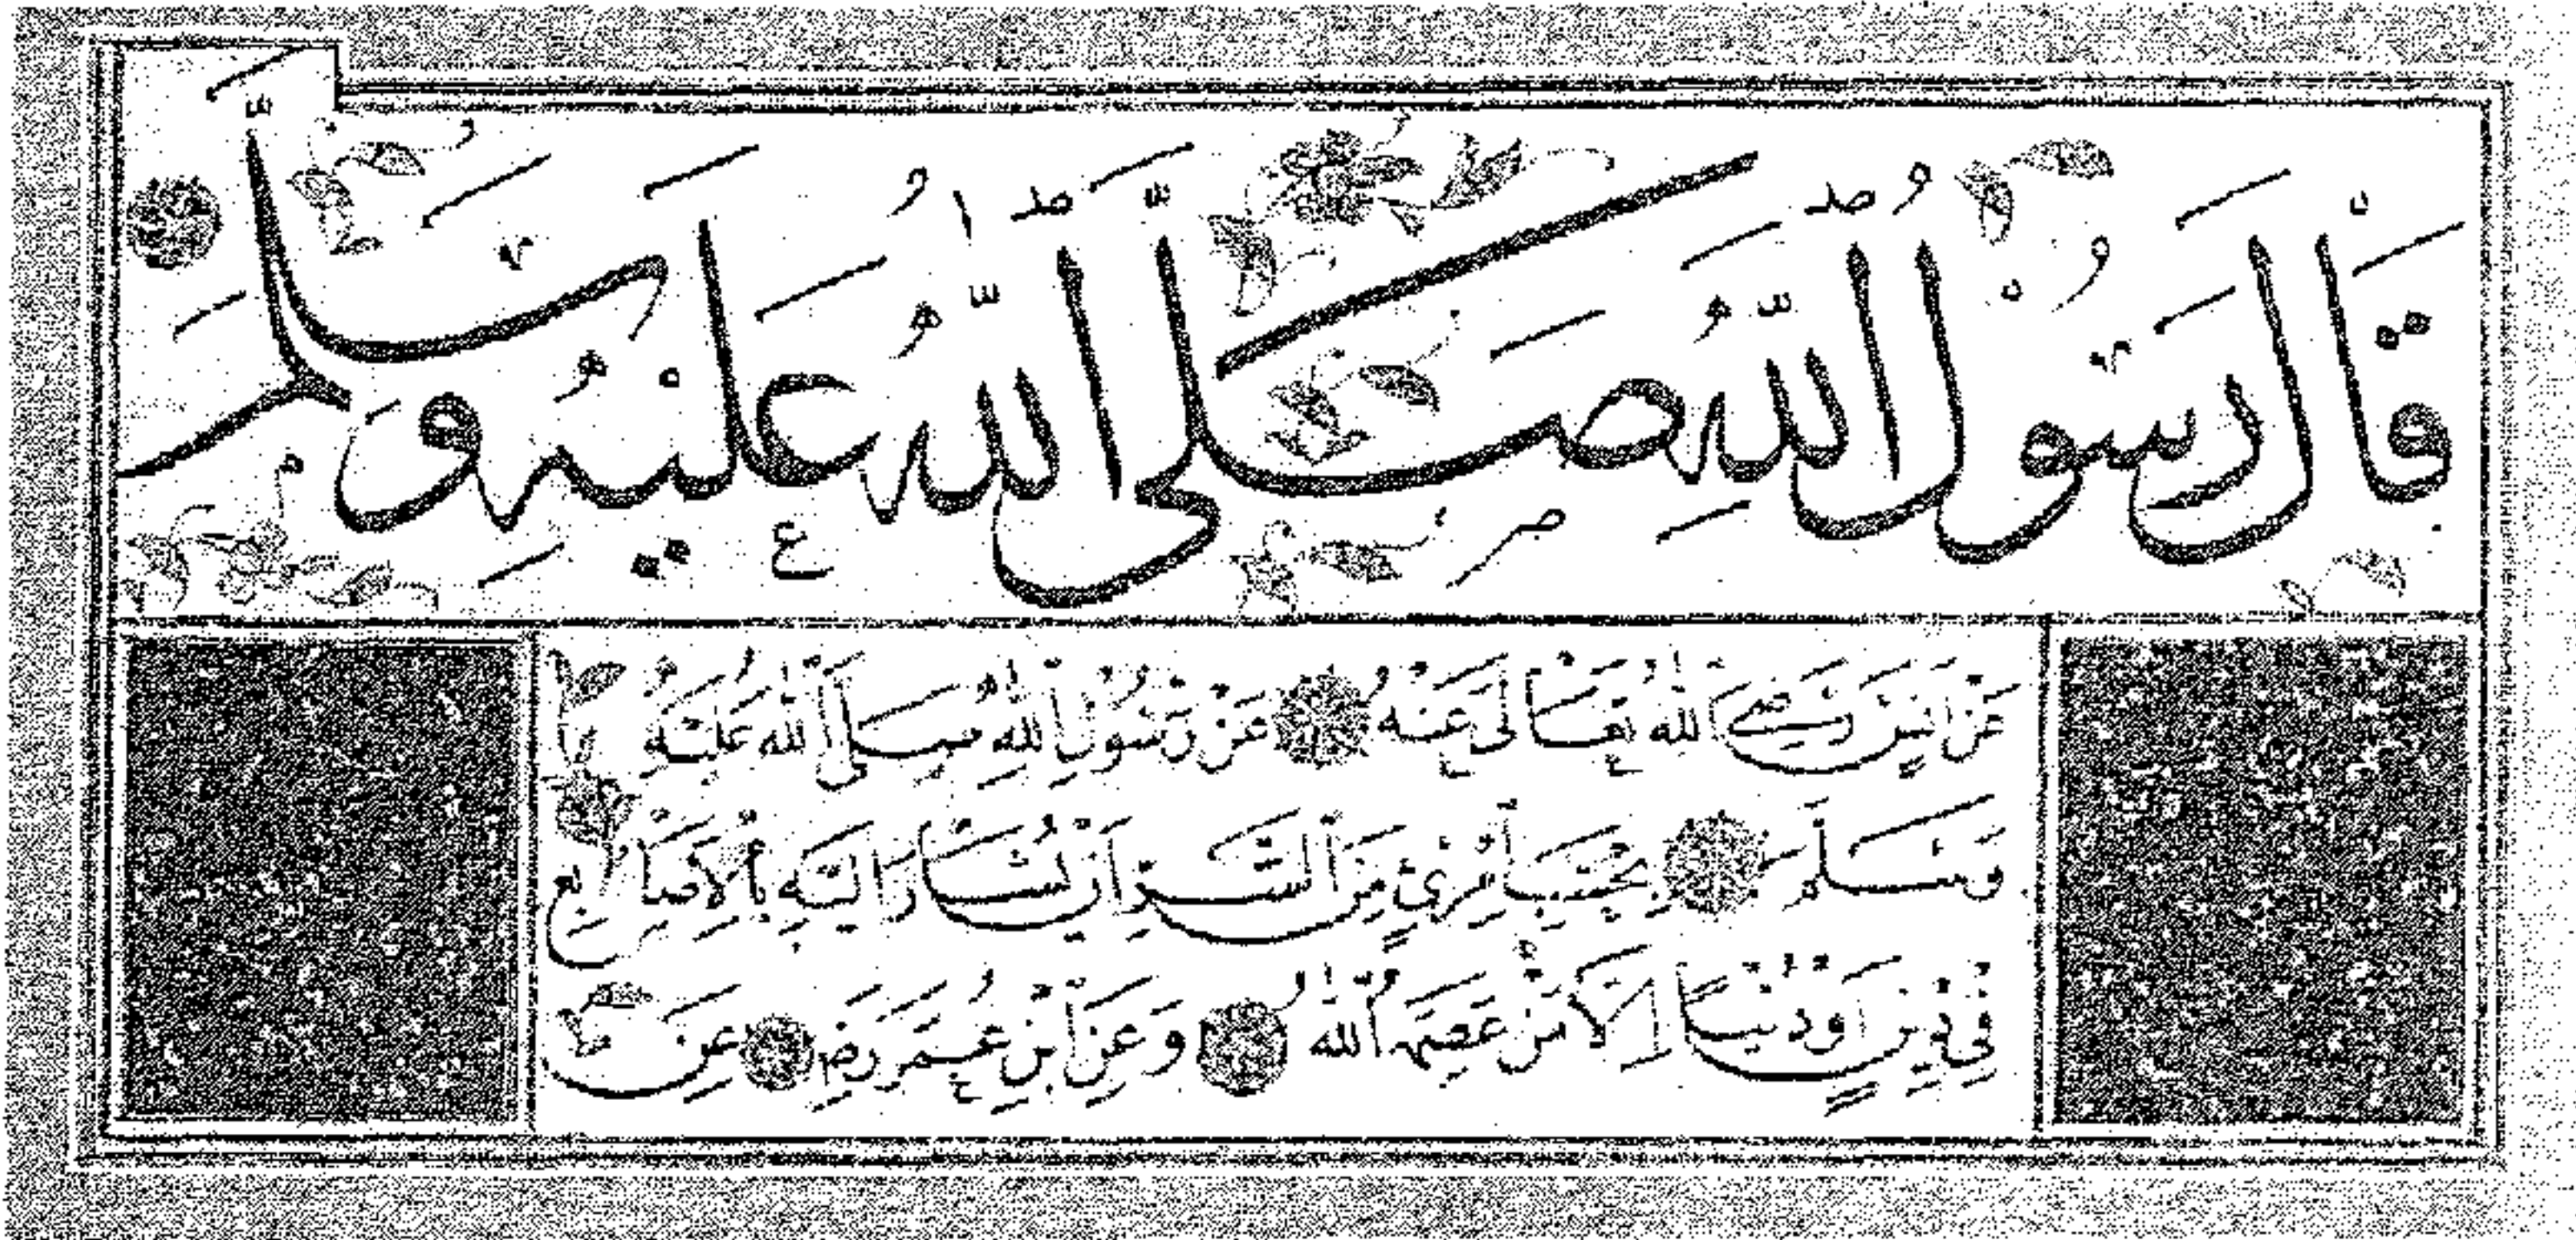 قَالَ رَسُولُ اللّٰهِ صَلَّى اللّٰهُ عَلَيْهِ وَسَلَّمَ
عَنْ اَنَسٍ رَضِىَ اللّٰهُ تَعَالٰى عَنْهُ عَنْ رَسُولِ اللّٰهِ صَلَّى اللّٰهُ عَلَيْهِ
وَسَلَّمَ بِحَسْبِ امْرِئٍ مِنَ الشَّرِّ اَنْ يُشَارَ اِلَيْهِ بِالْاَصَابِعِ
فِى دِينٍ اَوْ دُنْيَا اِلَّا مَنْ عَصَمَهُ اللّٰهُ وَعَنِ ابْنِ عُمَرَ رَضِ عَنِ